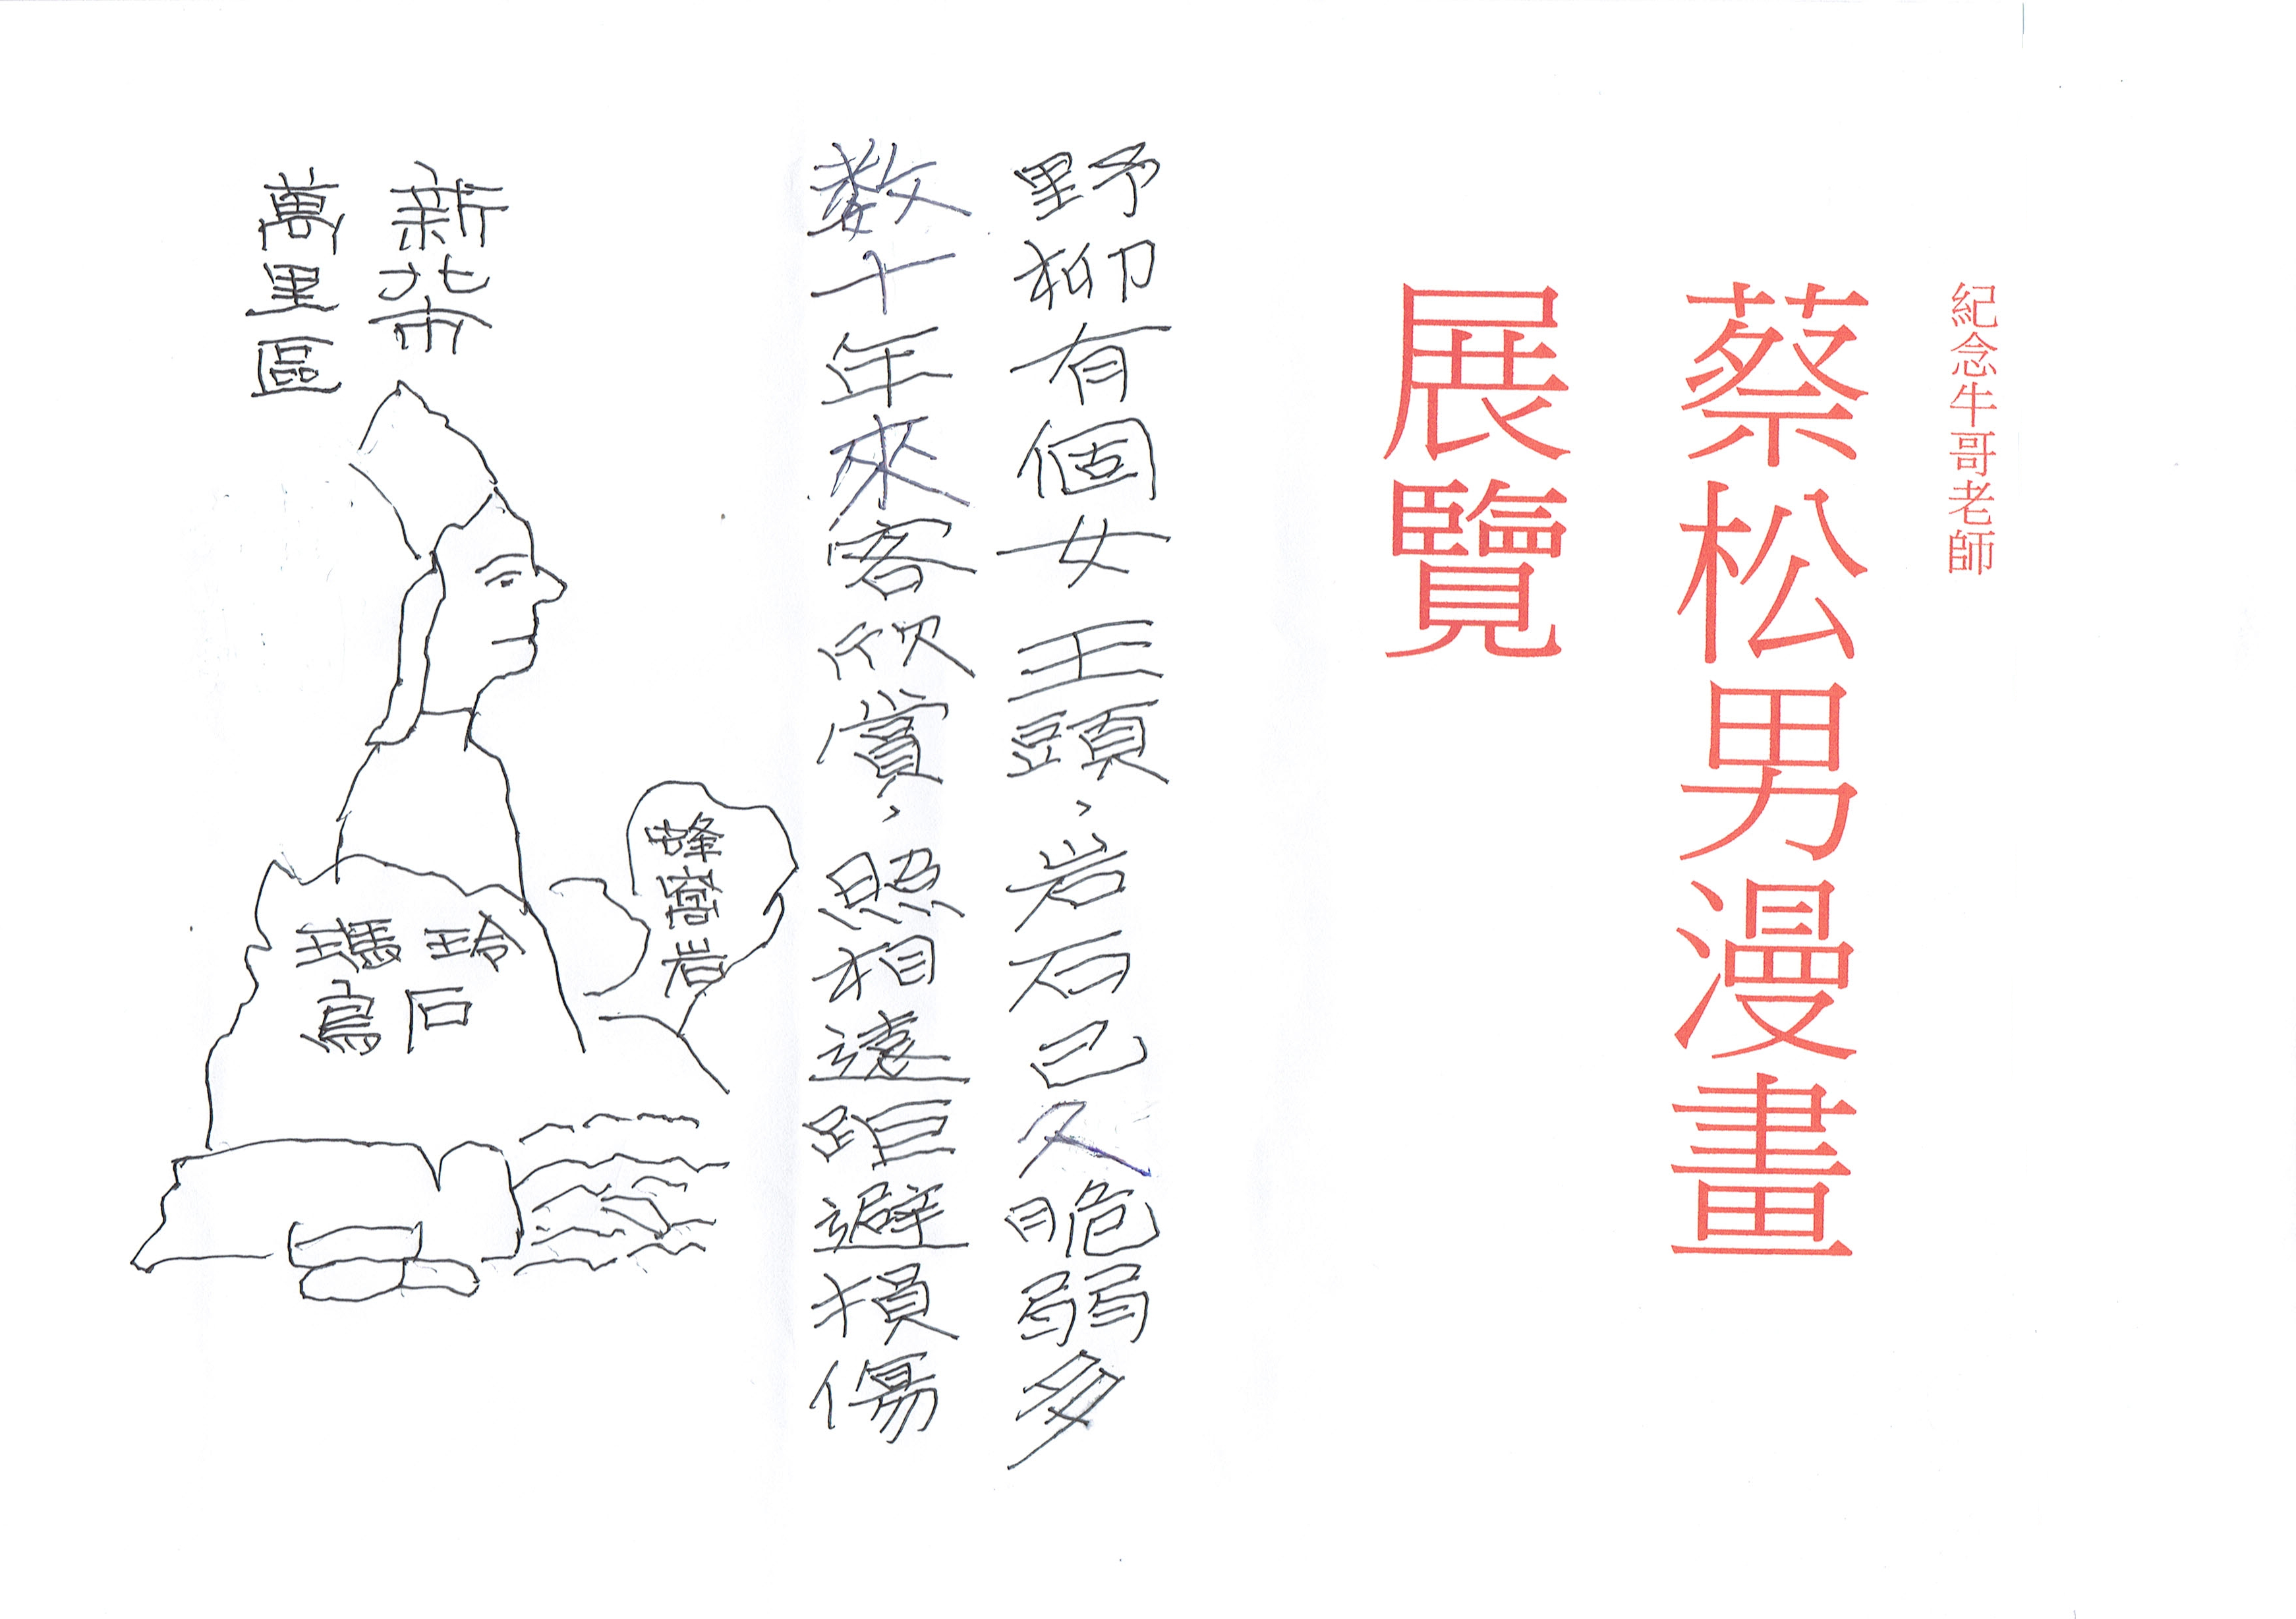 紀念牛哥老師
蔡松男漫畫
展覽
野柳有個女王頭、岩石已久脆弱多
數十年來客欣賞、照相遠距避損傷
新北市
萬里區
蜂窩岩
瑪玲
鳥石